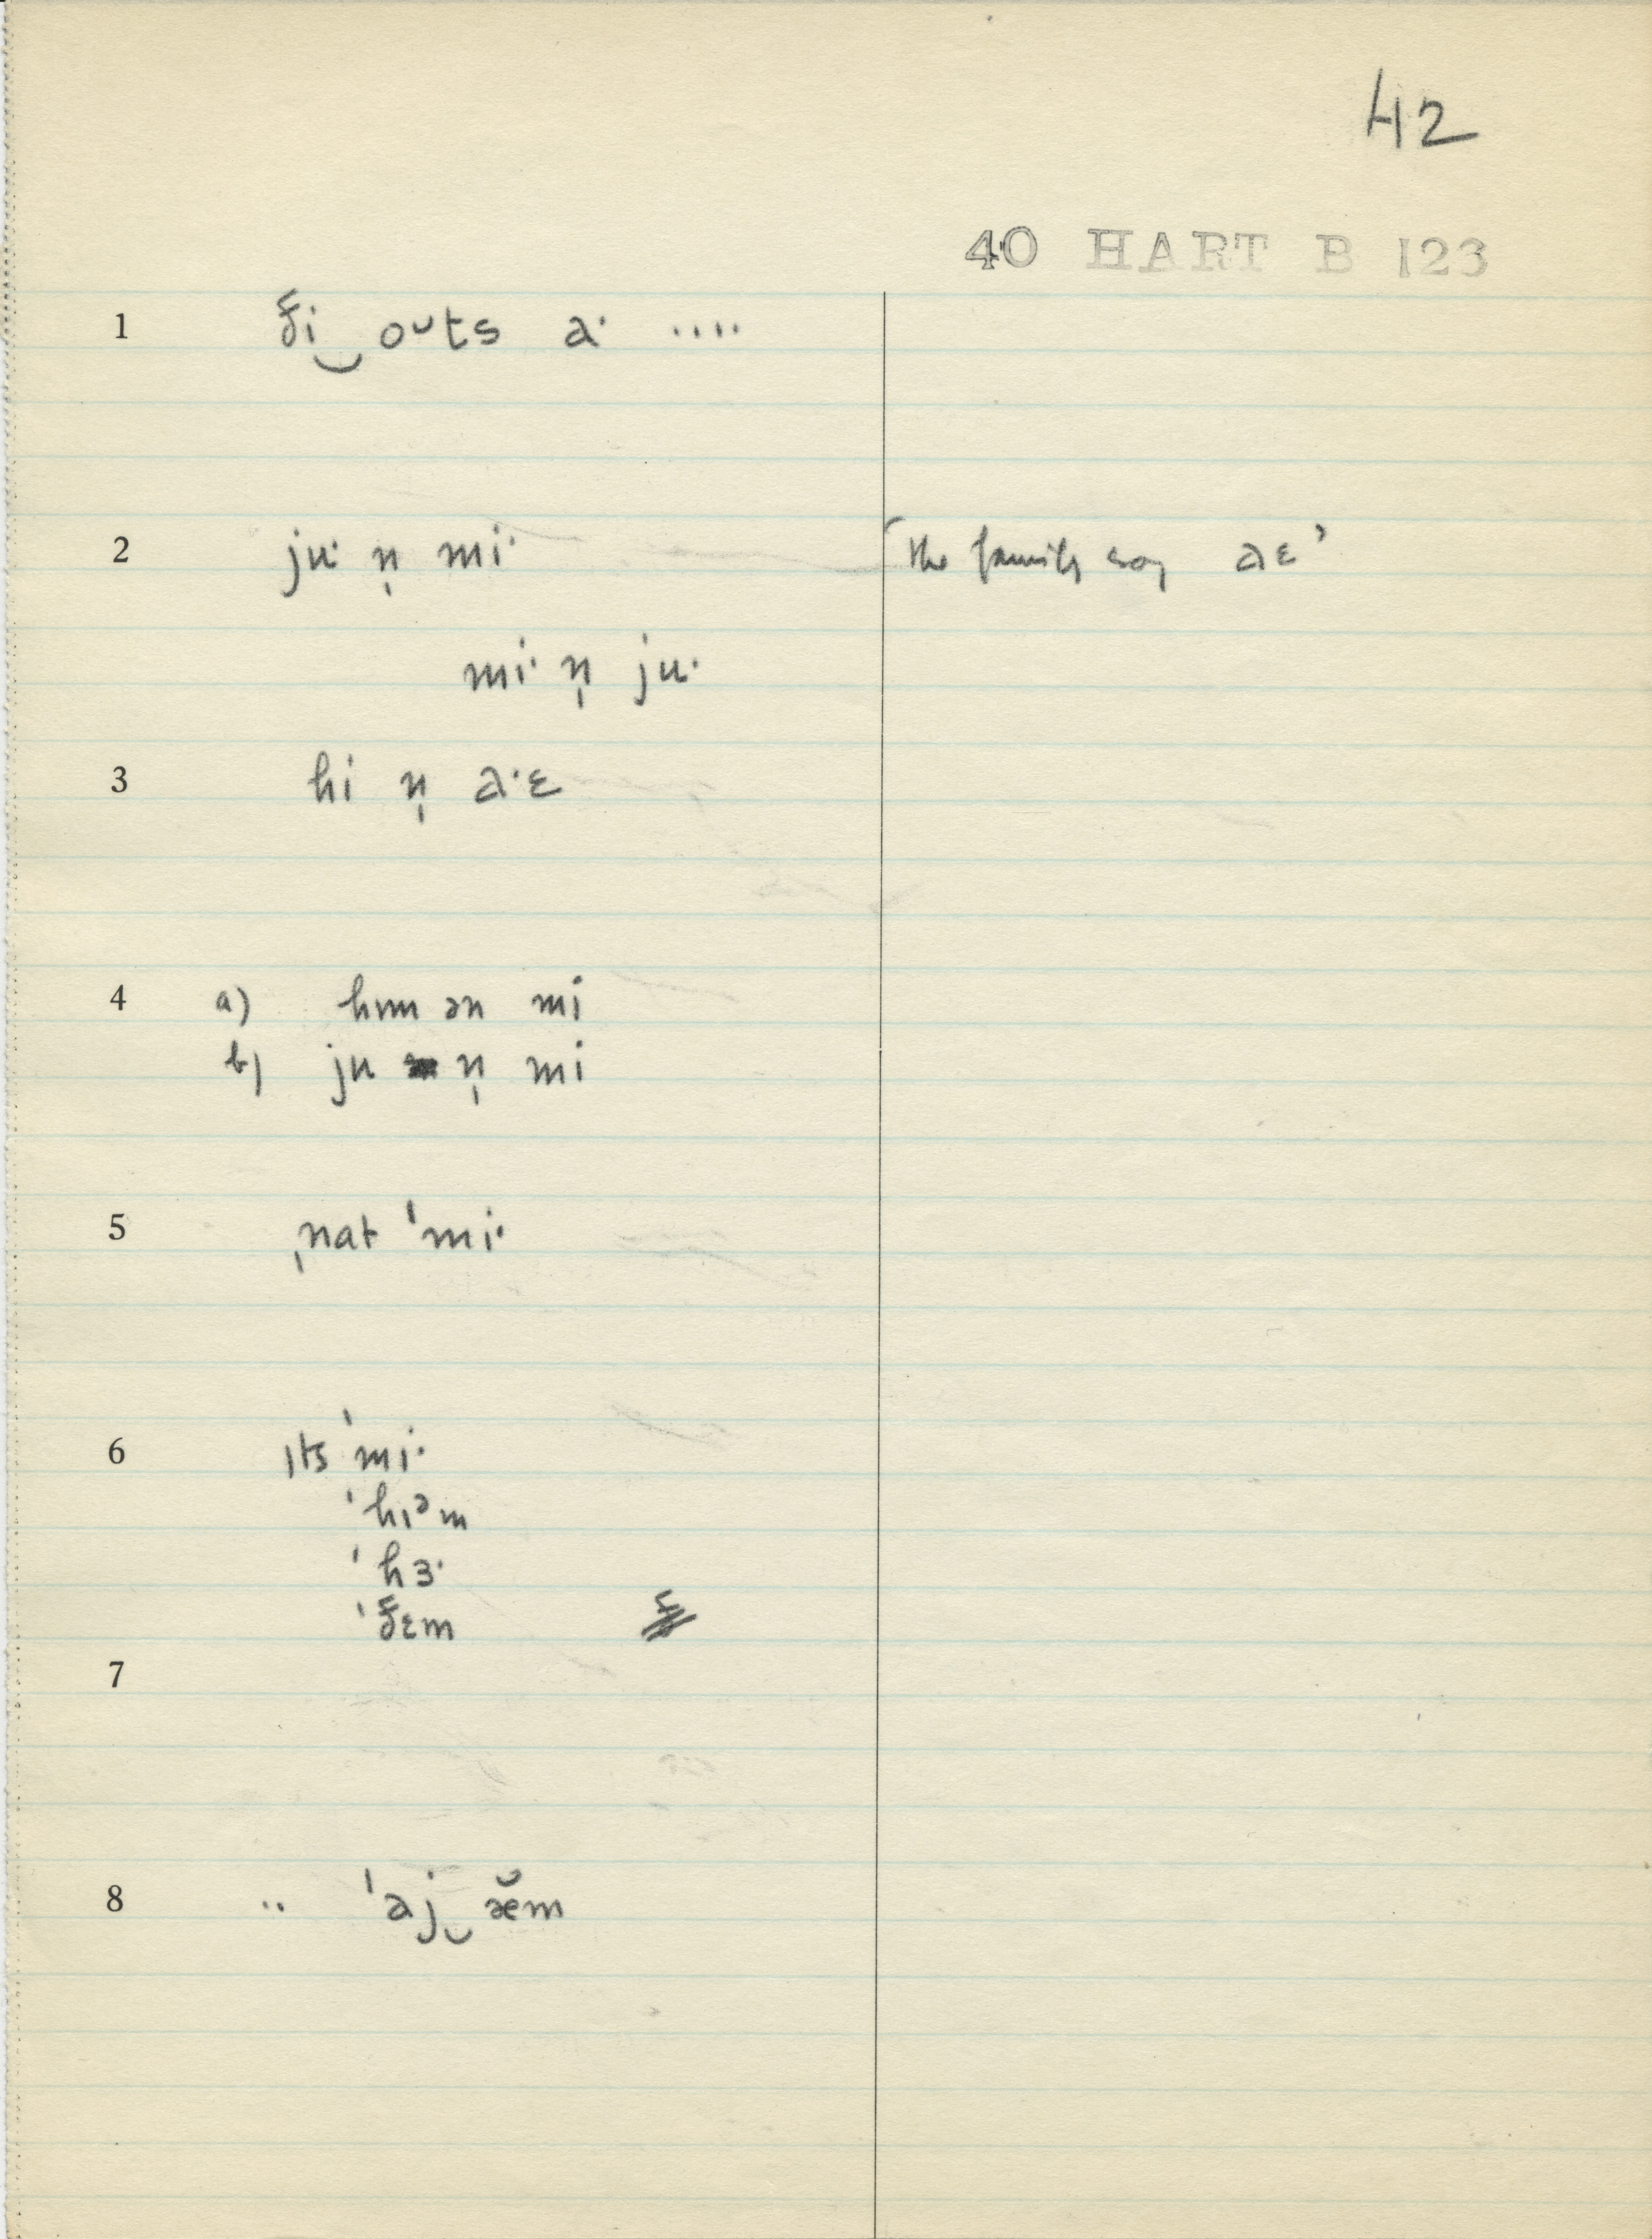 42
40 HART B 123
1 ði‿oᴜts a· ....
2 ju· n̩ mi· 'the family say aɛ'
mi· n̩ ju·
3 hi n̩ a·ɛ
4 a) hɪm ən mi
b) ju n̩ mi
5 ˌnat ˈmi·
6 ɪts ˈmi·
ˈhɪᵊm
ˈhɜ·
ˈðɛm
7
8 .. ˈaj‿æ̆m